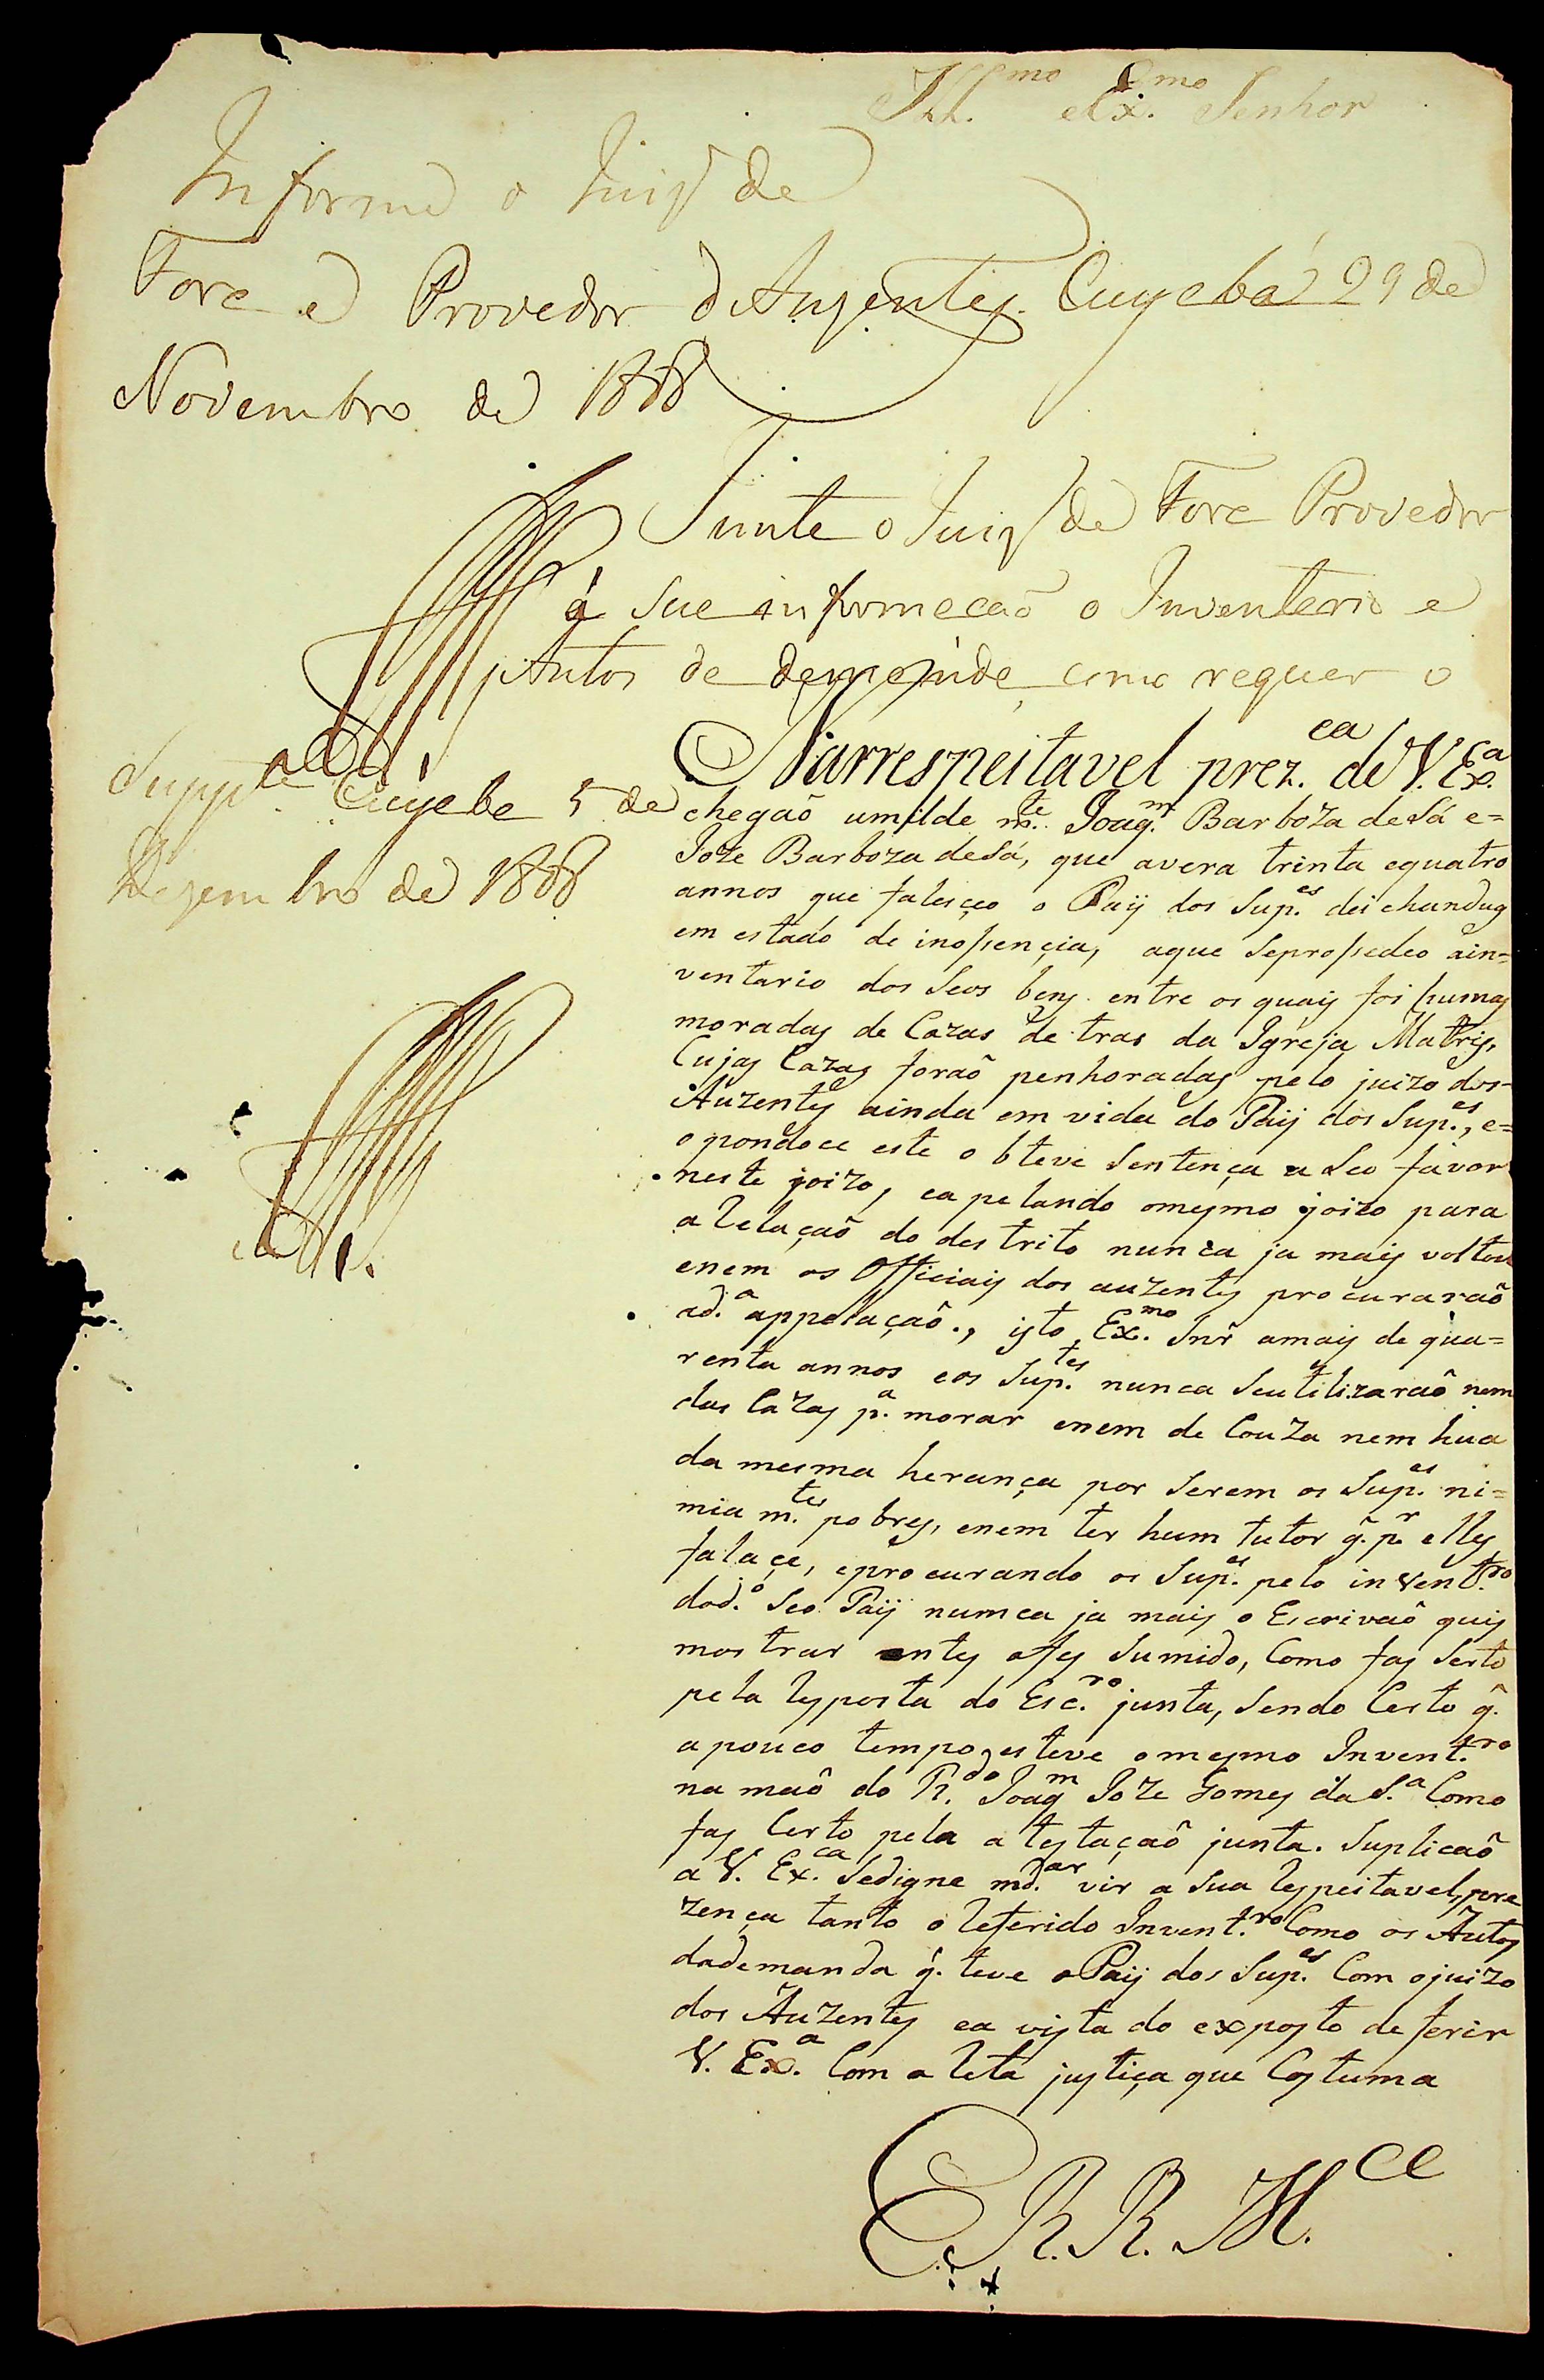 Ill.mo e Ex.mo Senhor
Informe o Juiz de
Fora e Provedor d'Auzentes. Cuyabá 29 de
Novembro de 1808
Junte o Juiz de Fora Provedor
á sua informação o Inventario e
Autos de demanda, como requer o
Supp.te Cuyaba 5 de
Dezembro de 1808
Narrespeitavel prez.ca de V. Ex.ca
chegaõ umilde m.te Joaq.m Barboza de Sá e=
Joze Barboza deSá, que avera trinta equatro
annos que falesçeo o Paij dos Sup.es deichandug
em estado de inossençia, aque Seprossedeo ain=
ventario dos Seos bens entre os quais foi humas
moradas de Cazas de tras da Igreja Matris,
Cujas Cazas foraõ penhoradas pelo juizo dos=
Auzentes ainda em vida do Paij dos Sup.es, e=
opondoce este obteve Sentença a Seo favor
neste joizo, eapelando omesmo joizo para
a Relaçaõ do destrito nunca ja mais voltou
enem os Officiais dos auzentes procuraraõ
ad.a appelaçaõ., isto Ex.mo Snr amais de qua=
renta annos eos Sup.tes nunca Seutilizaraõ nem
das Cazas p.a morar enem de Couza nem hua
da mesma herança por Serem os Sup.es ni=
mia m.tes pobres, enem ter hum tutor q. p.r elles
falaçe, eprocurando os Sup.es pelo invent.ro
dod.o Seo Paij numca ja mais o Escrivaõ quis
mostrar antes asessumido, Como fas Serto
pela Resposta do Esc.ro junta, Sendo Certo q.
apouco tempo esteve omesmo Invent.ro
na maõ do R.do Joaq.m Joze Gomes da S.a Como
fas Certo pela atestaçaõ junta. Suplicaõ
a V. Ex.ca Sedigne md.ar vir a Sua Respeitavel pre
zença tanto o Referido Invent.ro Como os Autos
dademanda q. teve o Paij dos Sup.es Com ojuizo
dos Auzentes ea vista do exposto deferir
V. Ex.a Com a Reta justiça que Costuma
E. R. R. M.ce